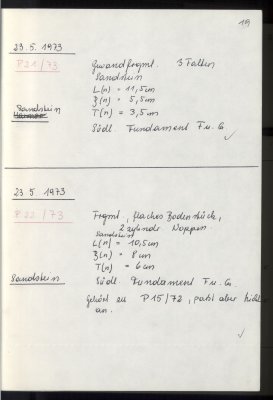 19
23.5.1973
P 21/73 Gewandfragmt. 3 Falten
Sandstein
L(n) = 11,5 cm
Sandstein B(n) = 5,5 cm
T(n) = 3,5 cm
Südl. Fundament F u. G
23.5.1973
P 22/73 Fragmt., flaches Bodenstück,
2 zylindr. Noppen
Sandstein
L(n) = 10,5 cm
B(n) = 8 cm
T(n) = 6 cm
Sandstein Südl. Fundament F u. G
gehört zu P 15/72, paßt aber nicht
an.